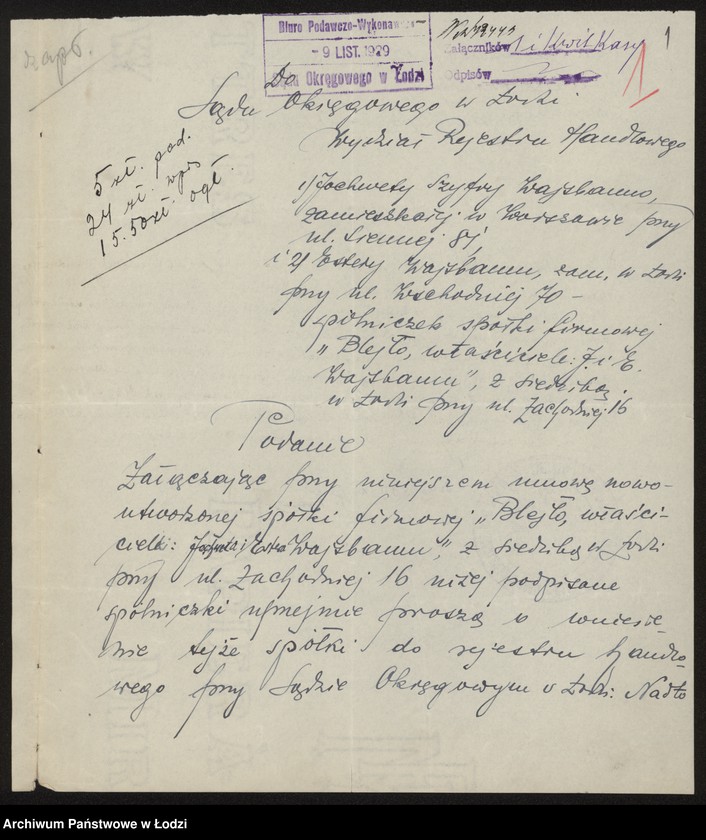 zapł.
Biuro Podawczo-Wykonawcze
- 9 LIST. 1929
Sądu Okręgowego w Łodzi
Załączników 1 i Kwit Kasy
Odpisów
1
1
Do
Sądu Okręgowego w Łodzi
Wydział Rejestru Handlowego
5 zł. pod.
24 zł. wpis
15.50 zł. ogł.
1/ Jochwety Szyfry Wajsbaum,
zamieszkałej w Warszawie przy
ul. Siennej 84,
i 2/ Estery Wajsbaum, zam. w Łodzi
przy ul. Wschodniej 70 -
spólniczek spółki firmowej
„Blejło, właściciele: J. i E.
Wajsbaum", z siedzibą
w Łodzi przy ul. Zachodniej 16
Podanie
Załączając przy niniejszem umowę nowo-
utworzonej spółki firmowej „Blejło, właści-
cielki: i Estera Wajsbaum", z siedzibą w Łodzi
przy ul. Zachodniej 16 niżej podpisane
spólniczki uprzejmie proszą o wniesie-
nie tejże spółki do rejestru handlo-
wego przy Sądzie Okręgowym w Łodzi. Nadto
Archiwum Państwowe w Łodzi